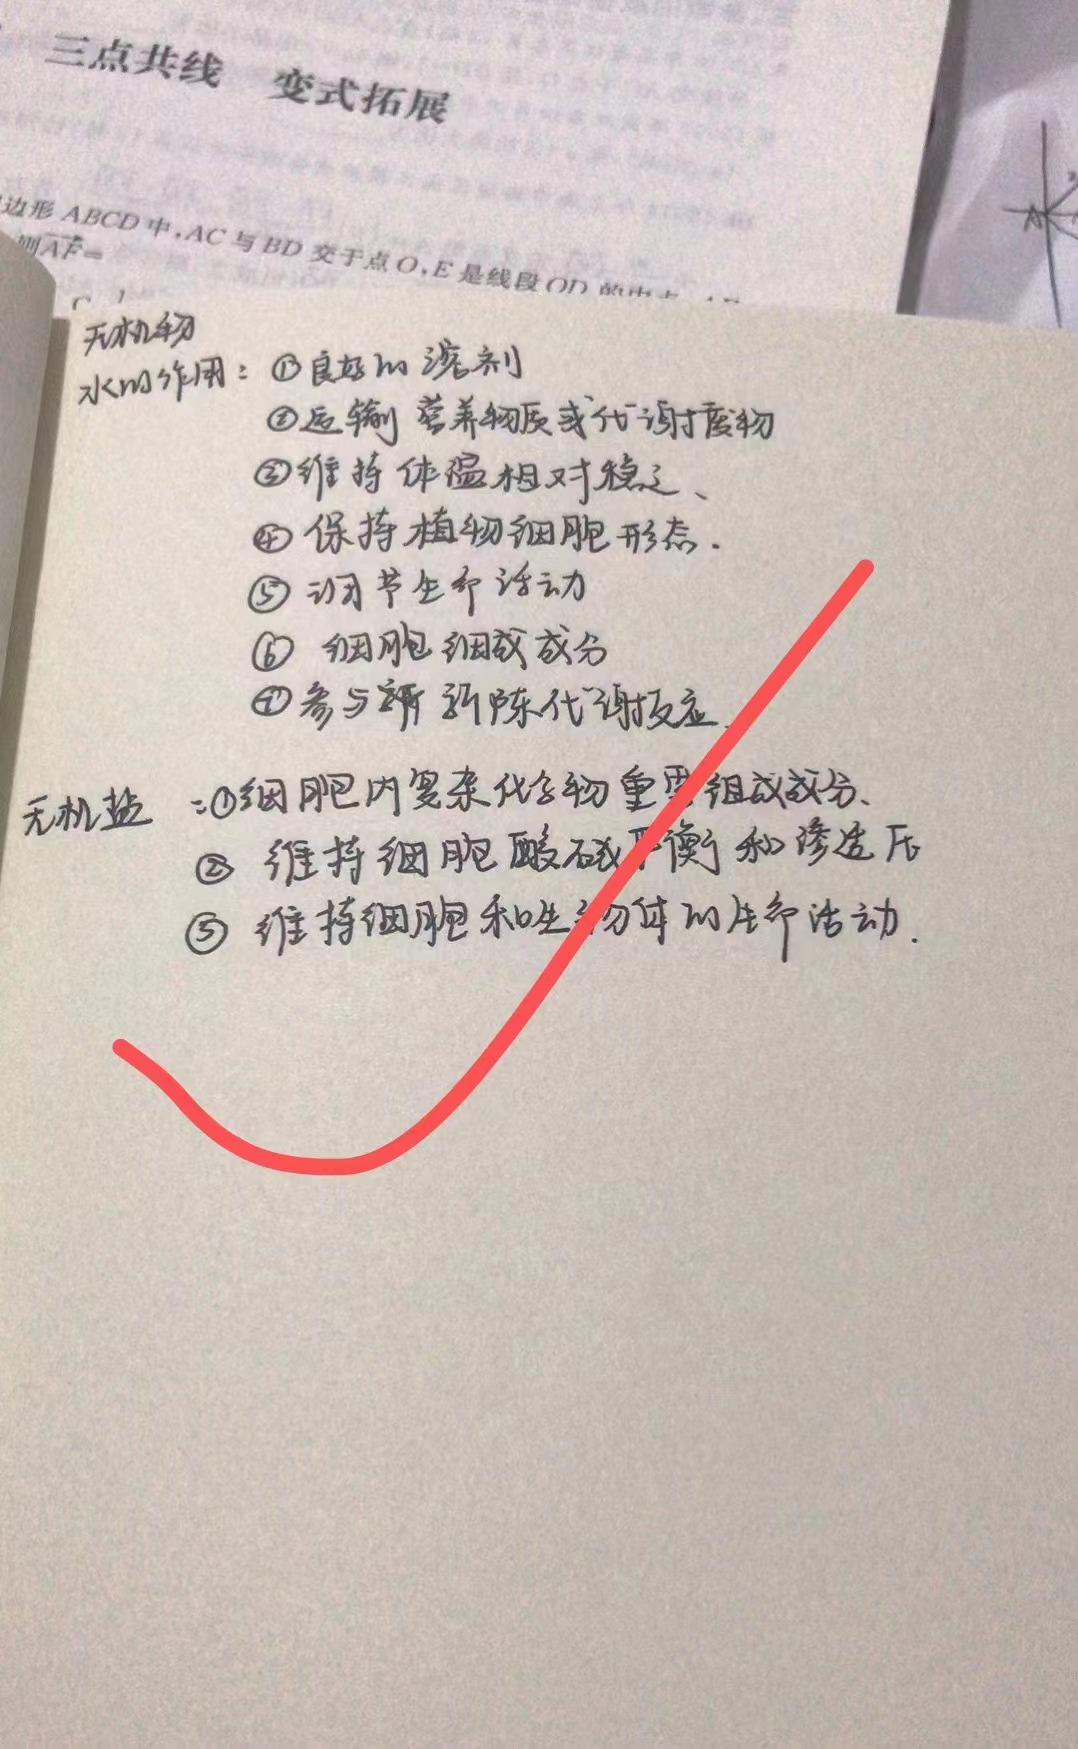 三点共线 变式拓展
边形ABCD中,AC与BD交于点O,E是线段OD的中点
则AF=
无机物
水的作用：①良好的溶剂
②运输营养物质或代谢废物
③维持体温相对稳定、
④保持植物细胞形态.
⑤调节生命活动
⑥细胞细成成分
⑦参与新陈代谢反应
无机盐：①细胞内复杂化合物重要组成成分、
②维持细胞酸碱平衡和渗透压
③维持细胞和生物体的生命活动.